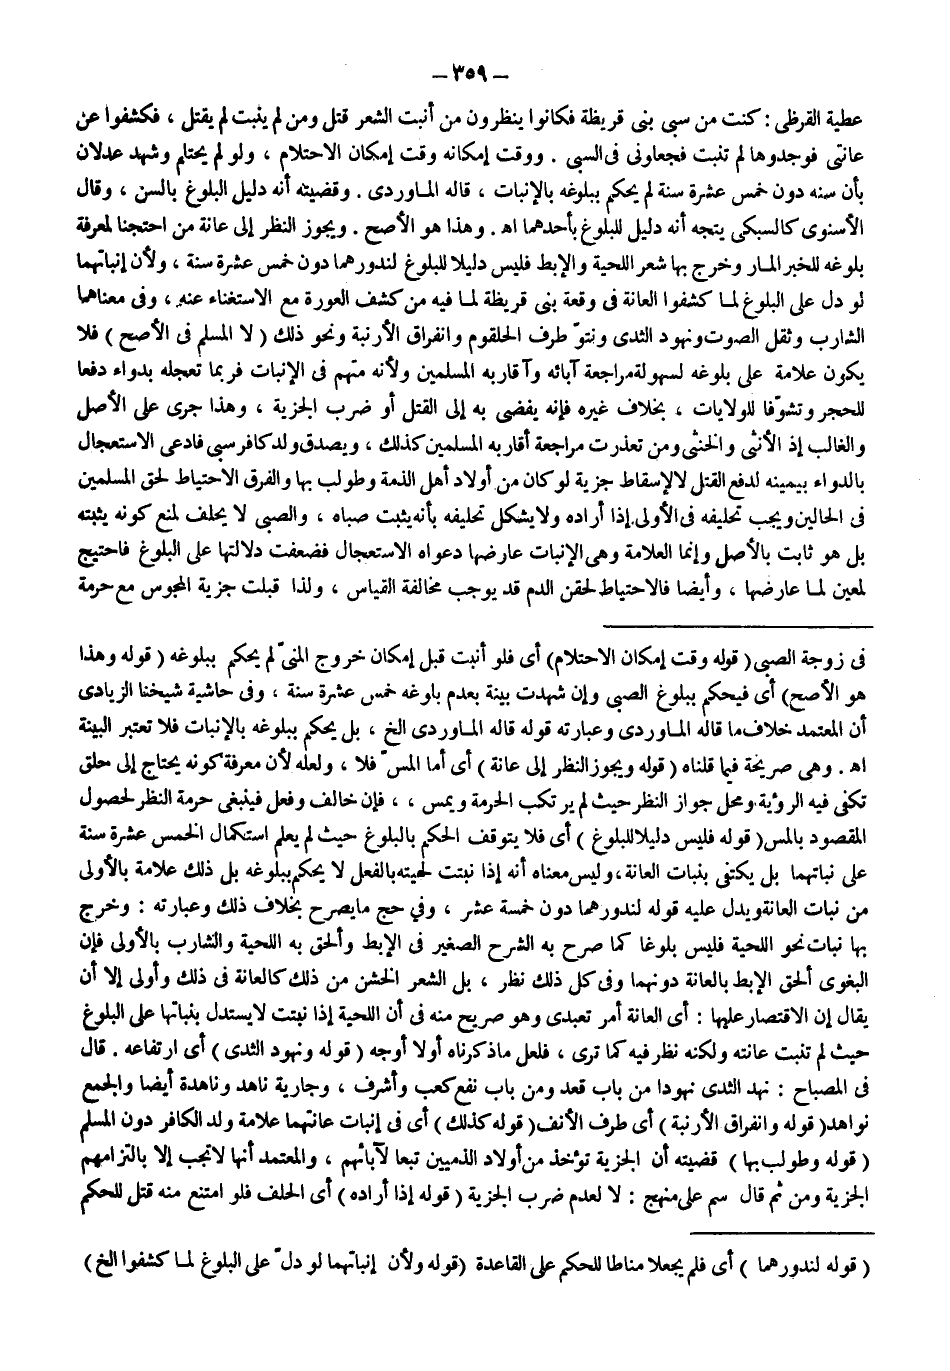 — ٣٥٩ —
عطية القرظى : كنت من سبى بنى قريظة فكانوا ينظرون من أنبت الشعر قتل ومن لم ينبت لم يقتل ، فكشفوا عن
عانتى فوجدوها لم تنبت فجعلونى فى السبى . ووقت إمكانه وقت إمكان الاحتلام ، ولو لم يحتلم وشهد عدلان
بأن سنه دون خمس عشرة سنة لم يحكم ببلوغه بالإنبات ، قاله المـاوردى . وقضيته أنه دليل البلوغ بالسن ، وقال
الأسنوى كالسبكى يتجه أنه دليل للبلوغ بأحدهما اه . وهذا هو الأصح . ويجوز النظر إلى عانة من احتجنا لمعرفة
بلوغه للخبر المـار وخرج بها شعر اللحية والإبط فليس دليلا للبلوغ لندورهما دون خمس عشرة سنة ، ولأن إنباتهما
لو دل على البلوغ لمـا كشفوا العانة فى وقعة بنى قريظة لمـا فيه من كشف العورة مع الاستغناء عنه ، وفى معناهما
الشارب وثقل الصوت ونهود الثدى ونتوّ طرف الحلقوم وانفراق الأرنبة ونحو ذلك ( لا المسلم فى الأصح ) فلا
يكون علامة على بلوغه لسهولة مراجعة آبائه وآقاربه المسلمين ولأنه متهم فى الإنبات فربما تعجله بدواء دفعا
للحجر وتشوّفا للولايات ، بخلاف غيره فإنه يفضى به إلى القتل أو ضرب الجزية ، وهذا جرى على الأصل
والغالب إذ الأنثى والخنثى ومن تعذرت مراجعة أقاربه المسلمين كذلك ، ويصدق ولد كافر سبى فادعى الاستعجال
بالدواء بيمينه لدفع القتل لالإسقاط جزية لو كان من أولاد أهل الذمة وطولب بها والفرق الاحتياط لحق المسلمين
فى الحالين ويجب تحليفه فى الأولى إذا أراده ولا يشكل تحليفه بأنه يثبت صباه ، والصبى لا يحلف لمنع كونه يثبته
بل هو ثابت بالأصل وإنما العلامة وهى الإنبات عارضها دعواه الاستعجال فضعفت دلالتها على البلوغ فاحتيج
لمعين لمـا عارضها ، وأيضا فالاحتياط لحقن الدم قد يوجب مخالفة القياس ، ولذا قبلت جزية المجوس مع حرمة
فى زوجة الصبى ( قوله وقت إمكان الاحتلام ) أى فلو أنبت قبل إمكان خروج المنىّ لم يحكم ببلوغه ( قوله وهذا
هو الأصح ) أى فيحكم ببلوغ الصبى وإن شهدت بينة بعدم بلوغه خمس عشرة سنة ، وفى حاشية شيخنا الزيادى
أن المعتمد خلاف ما قاله المـاوردى وعبارته قوله قاله المـاوردى الخ ، بل يحكم ببلوغه بالإنبات فلا تعتبر البينة
اه . وهى صريحة فيما قلناه ( قوله ويجوز النظر إلى عانة ) أى أما المسّ فلا ، ولعله لأن معرفة كونه يحتاج إلى حلق
تكفى فيه الرؤية ، ومحل جواز النظر حيث لم يرتكب الحرمة ويمس ، ، فإن خالف وفعل فينبغى حرمة النظر لحصول
المقصود بالمس ( قوله فليس دليلا للبلوغ ) أى فلا يتوقف الحكم بالبلوغ حيث لم يعلم استكمال الخمس عشرة سنة
على نباتهما بل يكتفى بنبات العانة ، وليس معناه أنه إذا نبتت لحيته بالفعل لا يحكم ببلوغه بل ذلك علامة بالأولى
من نبات العانة ويدل عليه قوله لندورهما دون خمسة عشر ، وفي حج ما يصرح بخلاف ذلك وعبارته : وخرج
بها نبات نحو اللحية فليس بلوغا كما صرح به الشرح الصغير فى الإبط وألحق به اللحية والشارب بالأولى فإن
البغوى ألحق الإبط بالعانة دونهما وفى كل ذلك نظر ، بل الشعر الخشن من ذلك كالعانة فى ذلك وأولى إلا أن
يقال إن الاقتصار عليها : أى العانة أمر تعبدى وهو صريح منه فى أن اللحية إذا نبتت لا يستدل بنباتها على البلوغ
حيث لم تنبت عانته ولكنه نظر فيه كما ترى ، فلعل ما ذكرناه أولا أوجه ( قوله ونهود الثدى ) أى ارتفاعه . قال
فى المصباح : نهد الثدى نهودا من باب قعد ومن باب نفع كعب وأشرف ، وجارية ناهد وناهدة أيضا والجمع
نواهد ( قوله وانفراق الأرنبة ) أى طرف الأنف ( قوله كذلك ) أى فى إنبات عانتهما علامة ولد الكافر دون المسلم
( قوله وطولب بها ) قضيته أن الجزية تؤخذ من أولاد الذميين تبعا لآبائهم ، والمعتمد أنها لا تجب إلا بالتزامهم
الجزية ومن ثم قال سم على منهج : لا لعدم ضرب الجزية ( قوله إذا أراده ) أى الحلف فلو امتنع منه قتل للحكم
( قوله لندورهما ) أى فلم يجعلا مناطا للحكم على القاعدة ( قوله ولأن إنباتهما لو دلّ على البلوغ لمـا كشفوا الخ )